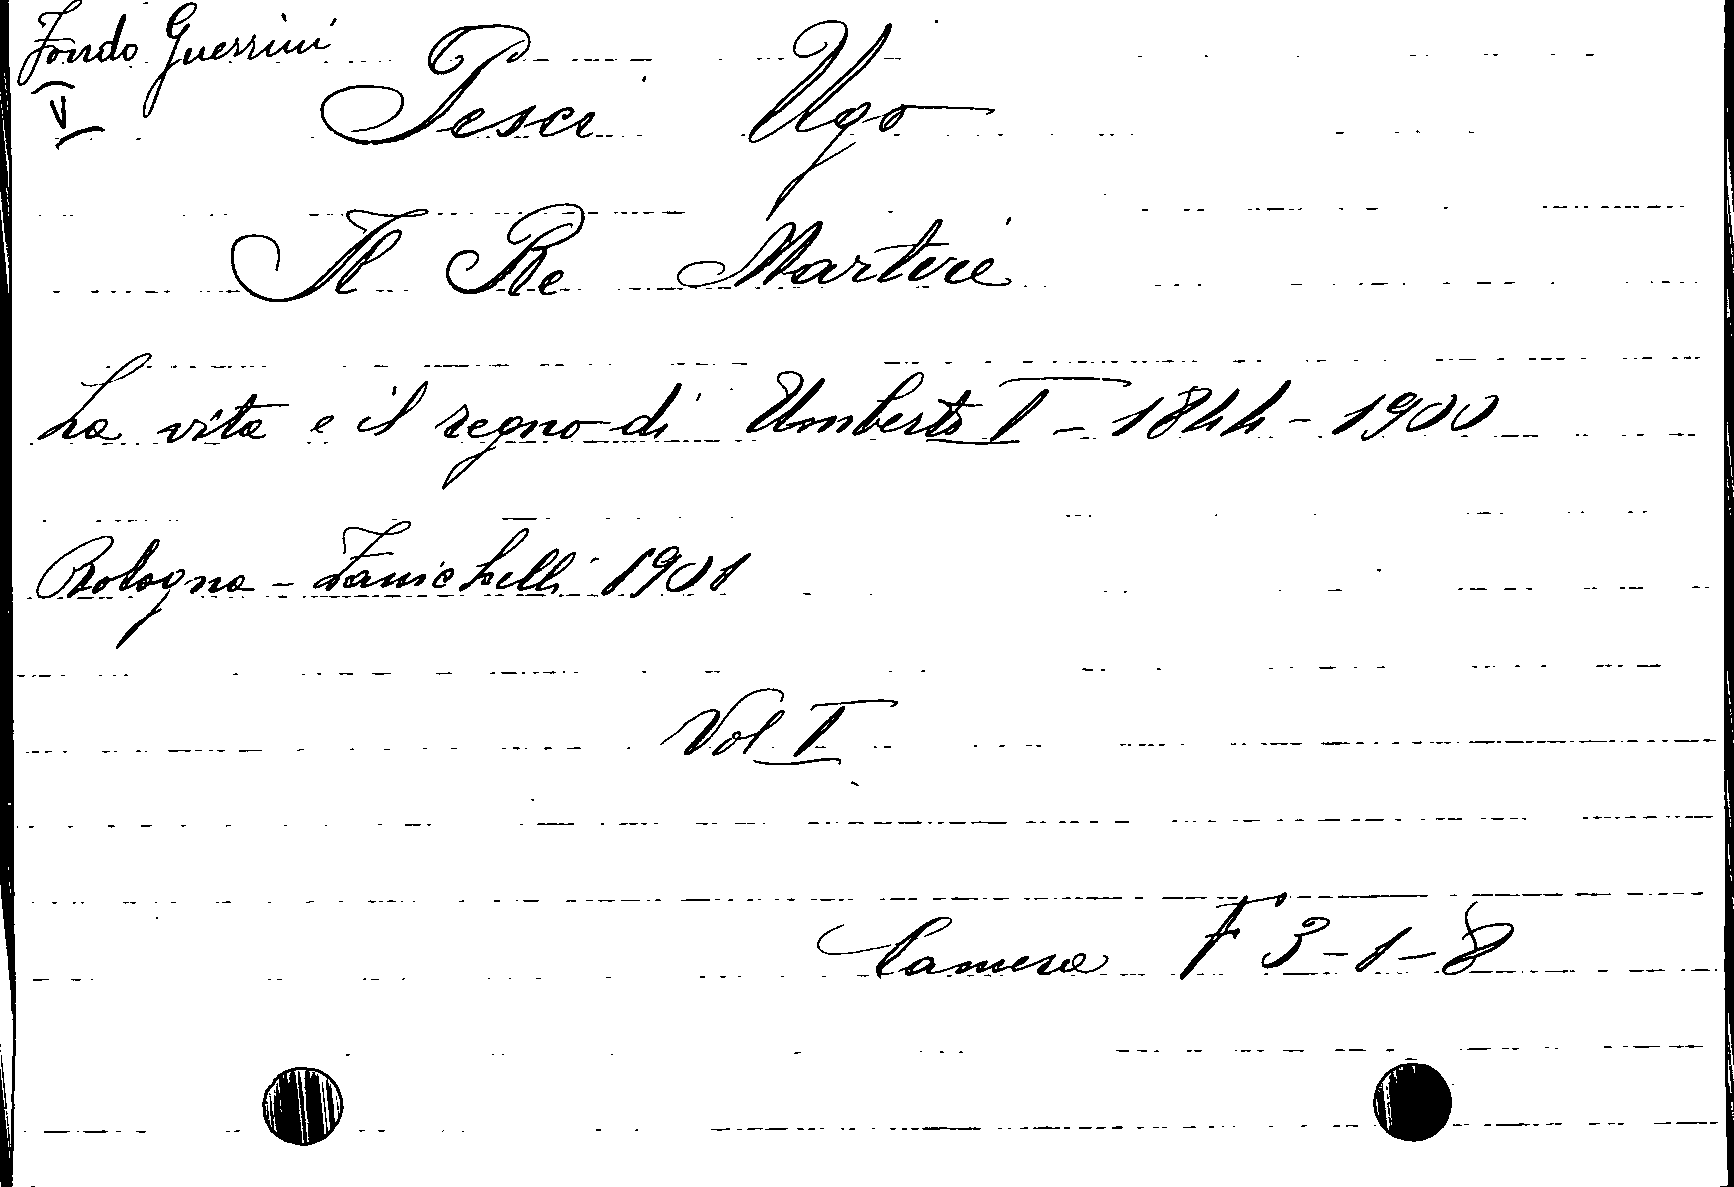 Fondo Guerrini
V
Pesci Ugo
Il Re Martire
La vita e il regno di Umberto I - 1844 - 1900
Bologna - Zanichelli 1901
Vol I
Camera F 3-1-8